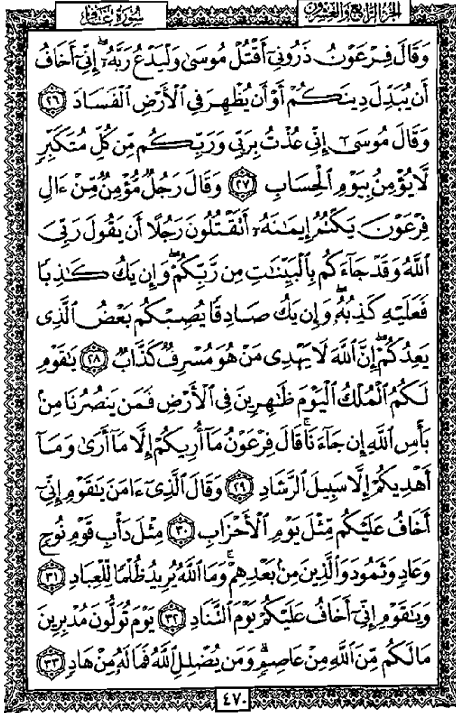 الجزء الرابع والعشرون
سورة غافر
وَقَالَ فِرْعَوْنُ ذَرُونِىٓ أَقْتُلْ مُوسَىٰ وَلْيَدْعُ رَبَّهُۥٓ إِنِّىٓ أَخَافُ
أَن يُبَدِّلَ دِينَكُمْ أَوْ أَن يُظْهِرَ فِى ٱلْأَرْضِ ٱلْفَسَادَ ٢٦
وَقَالَ مُوسَىٰٓ إِنِّى عُذْتُ بِرَبِّى وَرَبِّكُم مِّن كُلِّ مُتَكَبِّرٍ
لَّا يُؤْمِنُ بِيَوْمِ ٱلْحِسَابِ ٢٧ وَقَالَ رَجُلٌ مُّؤْمِنٌ مِّنْ ءَالِ
فِرْعَوْنَ يَكْتُمُ إِيمَٰنَهُۥٓ أَتَقْتُلُونَ رَجُلًا أَن يَقُولَ رَبِّىَ
ٱللَّهُ وَقَدْ جَآءَكُم بِٱلْبَيِّنَٰتِ مِن رَّبِّكُمْ ۖ وَإِن يَكُ كَٰذِبًا
فَعَلَيْهِ كَذِبُهُۥ ۖ وَإِن يَكُ صَادِقًا يُصِبْكُم بَعْضُ ٱلَّذِى
يَعِدُكُمْ ۖ إِنَّ ٱللَّهَ لَا يَهْدِى مَنْ هُوَ مُسْرِفٌ كَذَّابٌ ٢٨ يَٰقَوْمِ
لَكُمُ ٱلْمُلْكُ ٱلْيَوْمَ ظَٰهِرِينَ فِى ٱلْأَرْضِ فَمَن يَنصُرُنَا مِنۢ
بَأْسِ ٱللَّهِ إِن جَآءَنَا ۚ قَالَ فِرْعَوْنُ مَآ أُرِيكُمْ إِلَّا مَآ أَرَىٰ وَمَآ
أَهْدِيكُمْ إِلَّا سَبِيلَ ٱلرَّشَادِ ٢٩ وَقَالَ ٱلَّذِىٓ ءَامَنَ يَٰقَوْمِ إِنِّىٓ
أَخَافُ عَلَيْكُم مِّثْلَ يَوْمِ ٱلْأَحْزَابِ ٣٠ مِثْلَ دَأْبِ قَوْمِ نُوحٍ
وَعَادٍ وَثَمُودَ وَٱلَّذِينَ مِنۢ بَعْدِهِمْ ۚ وَمَا ٱللَّهُ يُرِيدُ ظُلْمًا لِّلْعِبَادِ ٣١
وَيَٰقَوْمِ إِنِّىٓ أَخَافُ عَلَيْكُمْ يَوْمَ ٱلتَّنَادِ ٣٢ يَوْمَ تُوَلُّونَ مُدْبِرِينَ
مَا لَكُم مِّنَ ٱللَّهِ مِنْ عَاصِمٍ ۗ وَمَن يُضْلِلِ ٱللَّهُ فَمَا لَهُۥ مِنْ هَادٍ ٣٣
٤٧٠